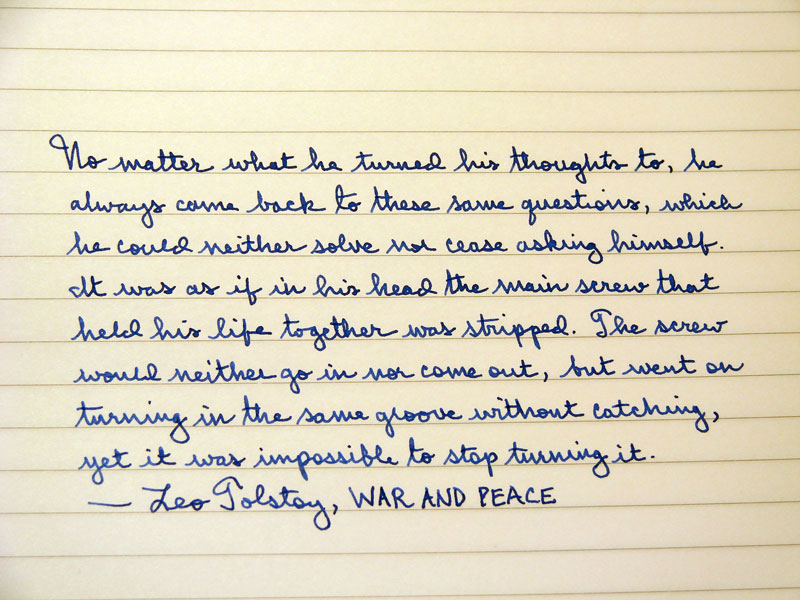 No matter what he turned his thoughts to, he
always came back to these same questions, which
he could neither solve nor cease asking himself.
It was as if in his head the main screw that
held his life together was stripped. The screw
would neither go in nor come out, but went on
turning in the same groove without catching,
yet it was impossible to stop turning it.
— Leo Tolstoy, WAR AND PEACE